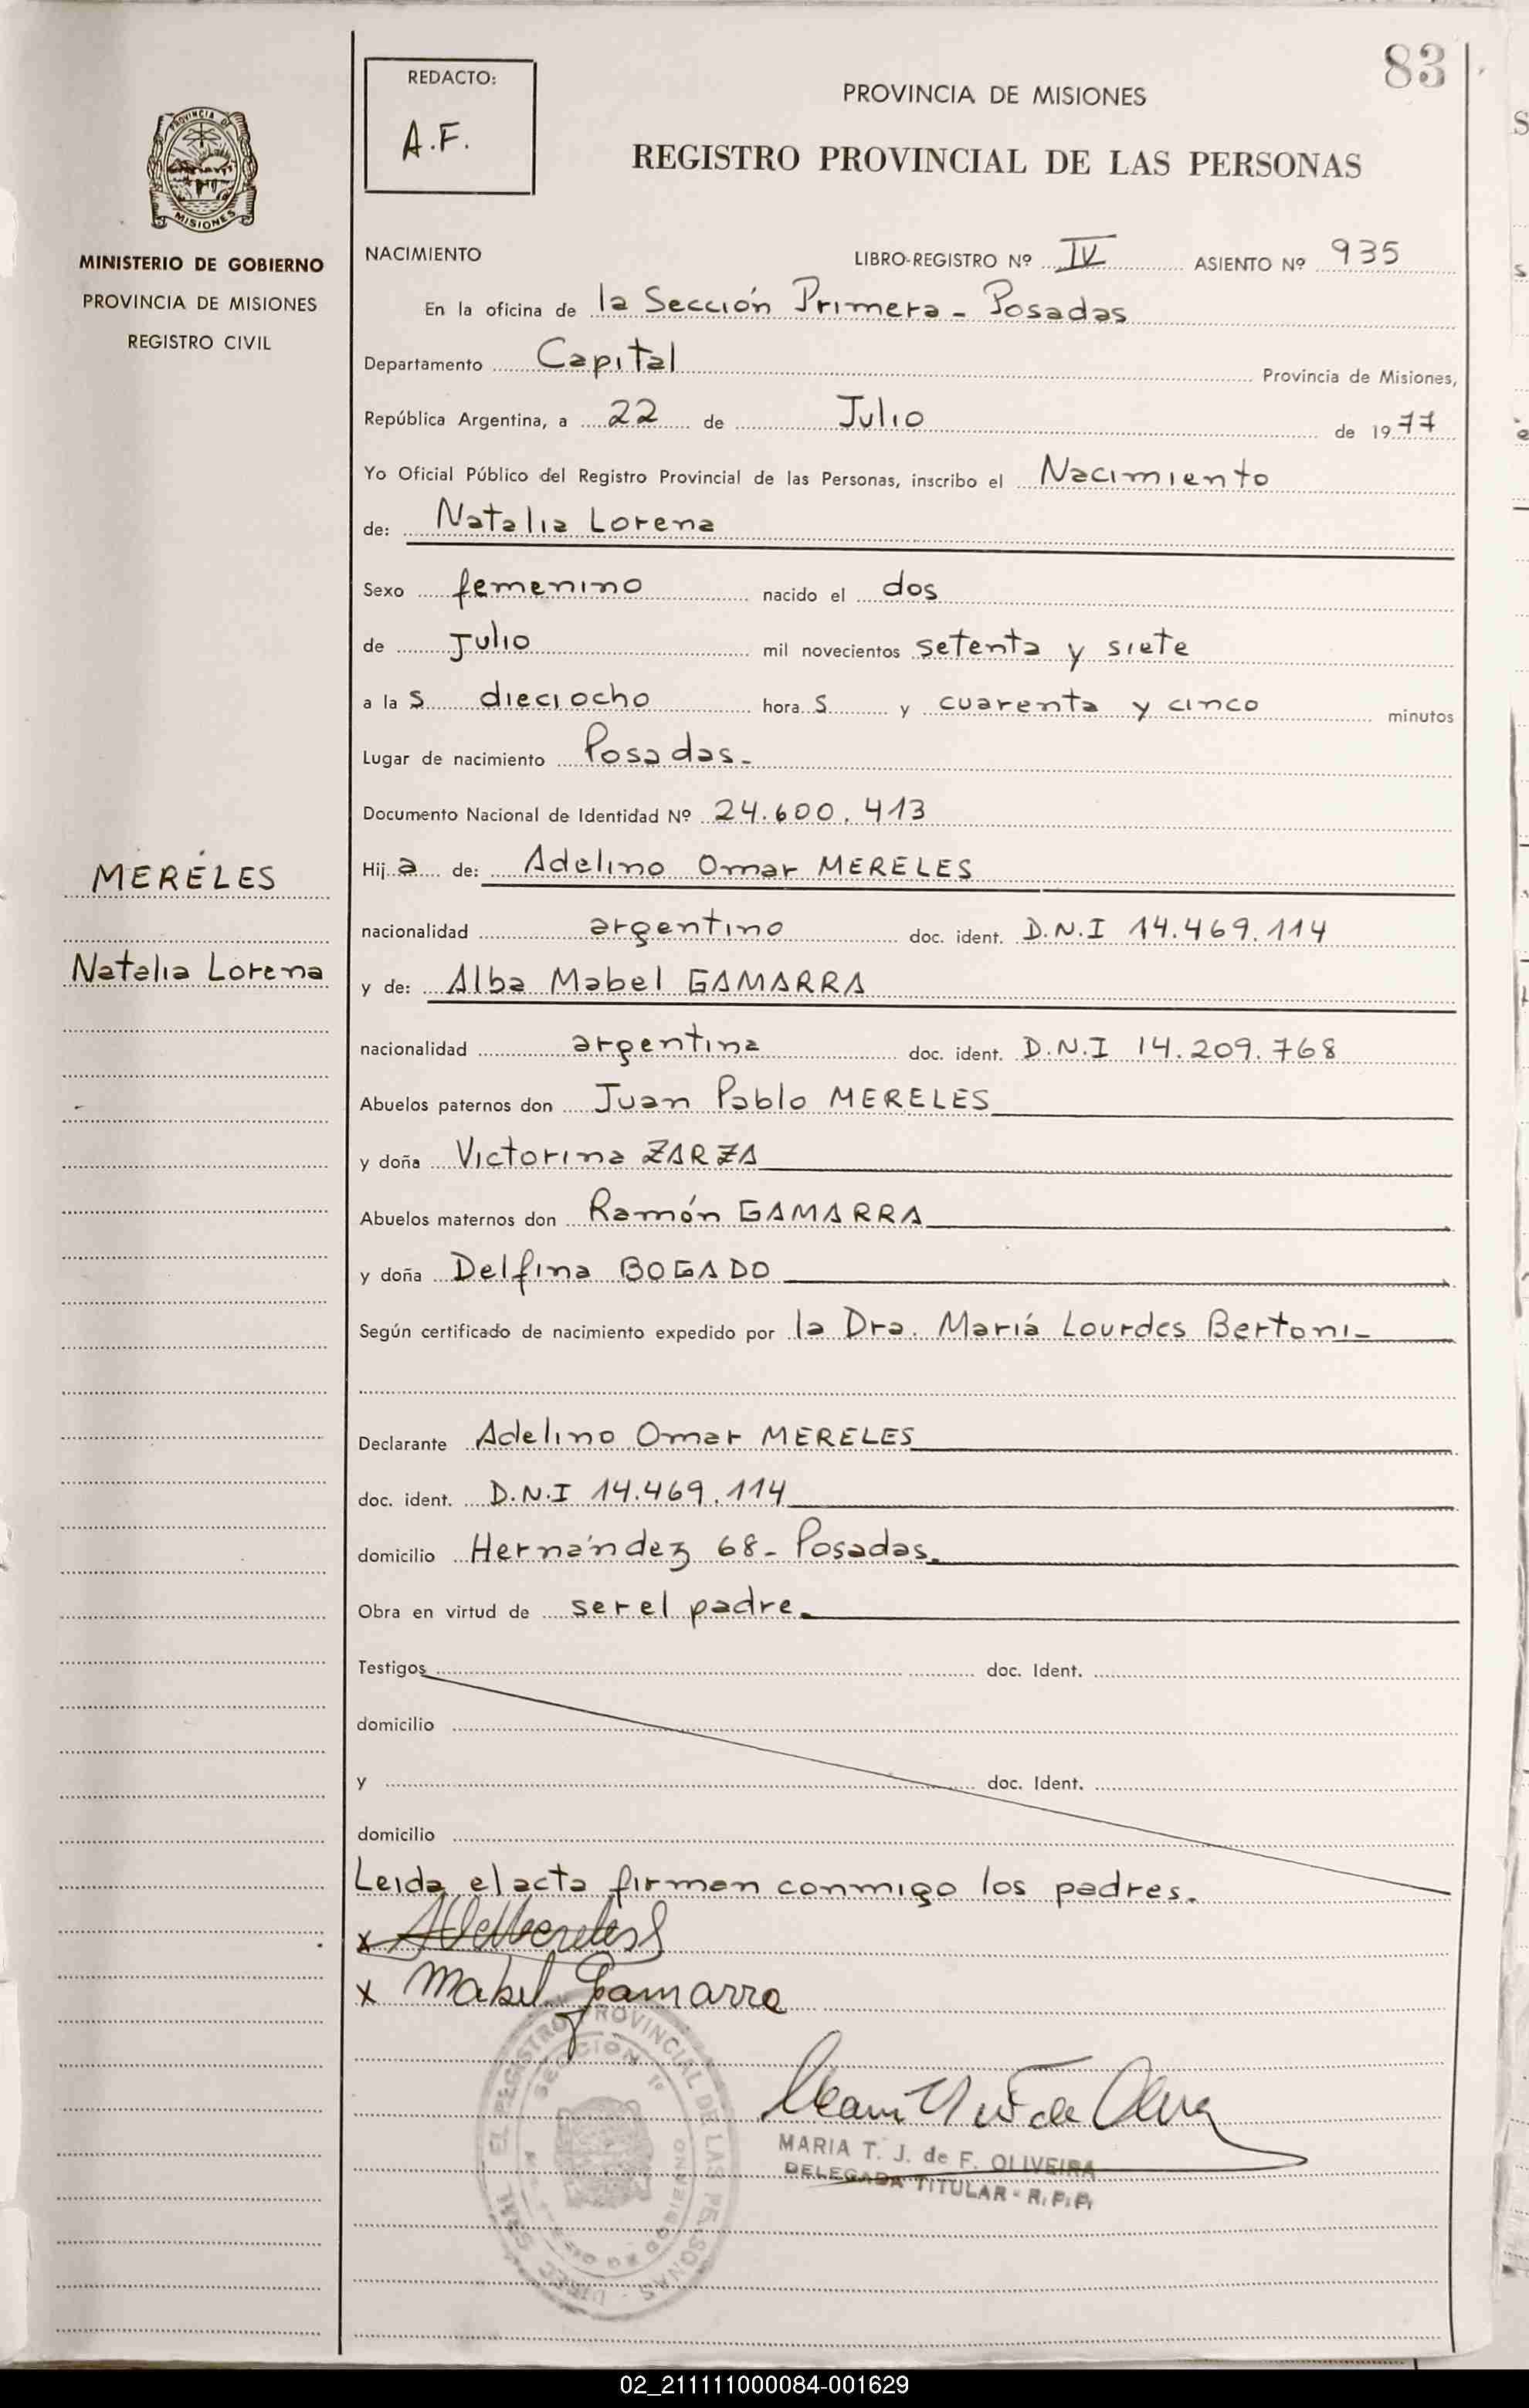 83
REDACTO:
A.F.
PROVINCIA DE MISIONES
REGISTRO PROVINCIAL DE LAS PERSONAS
PROVINCIA DE
MISIONES
MINISTERIO DE GOBIERNO
PROVINCIA DE MISIONES
REGISTRO CIVIL
MERÉLES
Natalia Lorena
NACIMIENTO LIBRO-REGISTRO Nº IV ASIENTO Nº 935
En la oficina de la Sección Primera - Posadas
Departamento Capital Provincia de Misiones,
República Argentina, a 22 de Julio de 1977
Yo Oficial Público del Registro Provincial de las Personas, inscribo el Nacimiento
de: Natalia Lorena
Sexo femenino nacido el dos
de Julio mil novecientos setenta y siete
a las dieciocho horas y cuarenta y cinco minutos
Lugar de nacimiento Posadas.-
Documento Nacional de Identidad Nº 24.600.413
Hija de: Adelino Omar MERELES
nacionalidad argentino doc. ident. D.N.I 14.469.114
y de: Alba Mabel GAMARRA
nacionalidad argentina doc. ident. D.N.I 14.209.768
Abuelos paternos don Juan Pablo MERELES
y doña Victorina ZARZA
Abuelos maternos don Ramón GAMARRA
y doña Delfina BOGADO
Según certificado de nacimiento expedido por la Dra. Mariá Lourdes Bertoni-
Declarante Adelino Omar MERELES
doc. ident. D.N.I 14.469.114
domicilio Hernández 68- Posadas.
Obra en virtud de ser el padre.
Testigos doc. Ident.
domicilio
y doc. Ident.
domicilio
Leida el acta firman conmigo los padres.
x
x Mabel Gamarra
REGISTRO PROVINCIAL DE LAS PERSONAS
SECCION 1º
MARIA T. J. de F. OLIVEIRA
DELEGADA TITULAR - R.P.P.
02_211111000084-001629